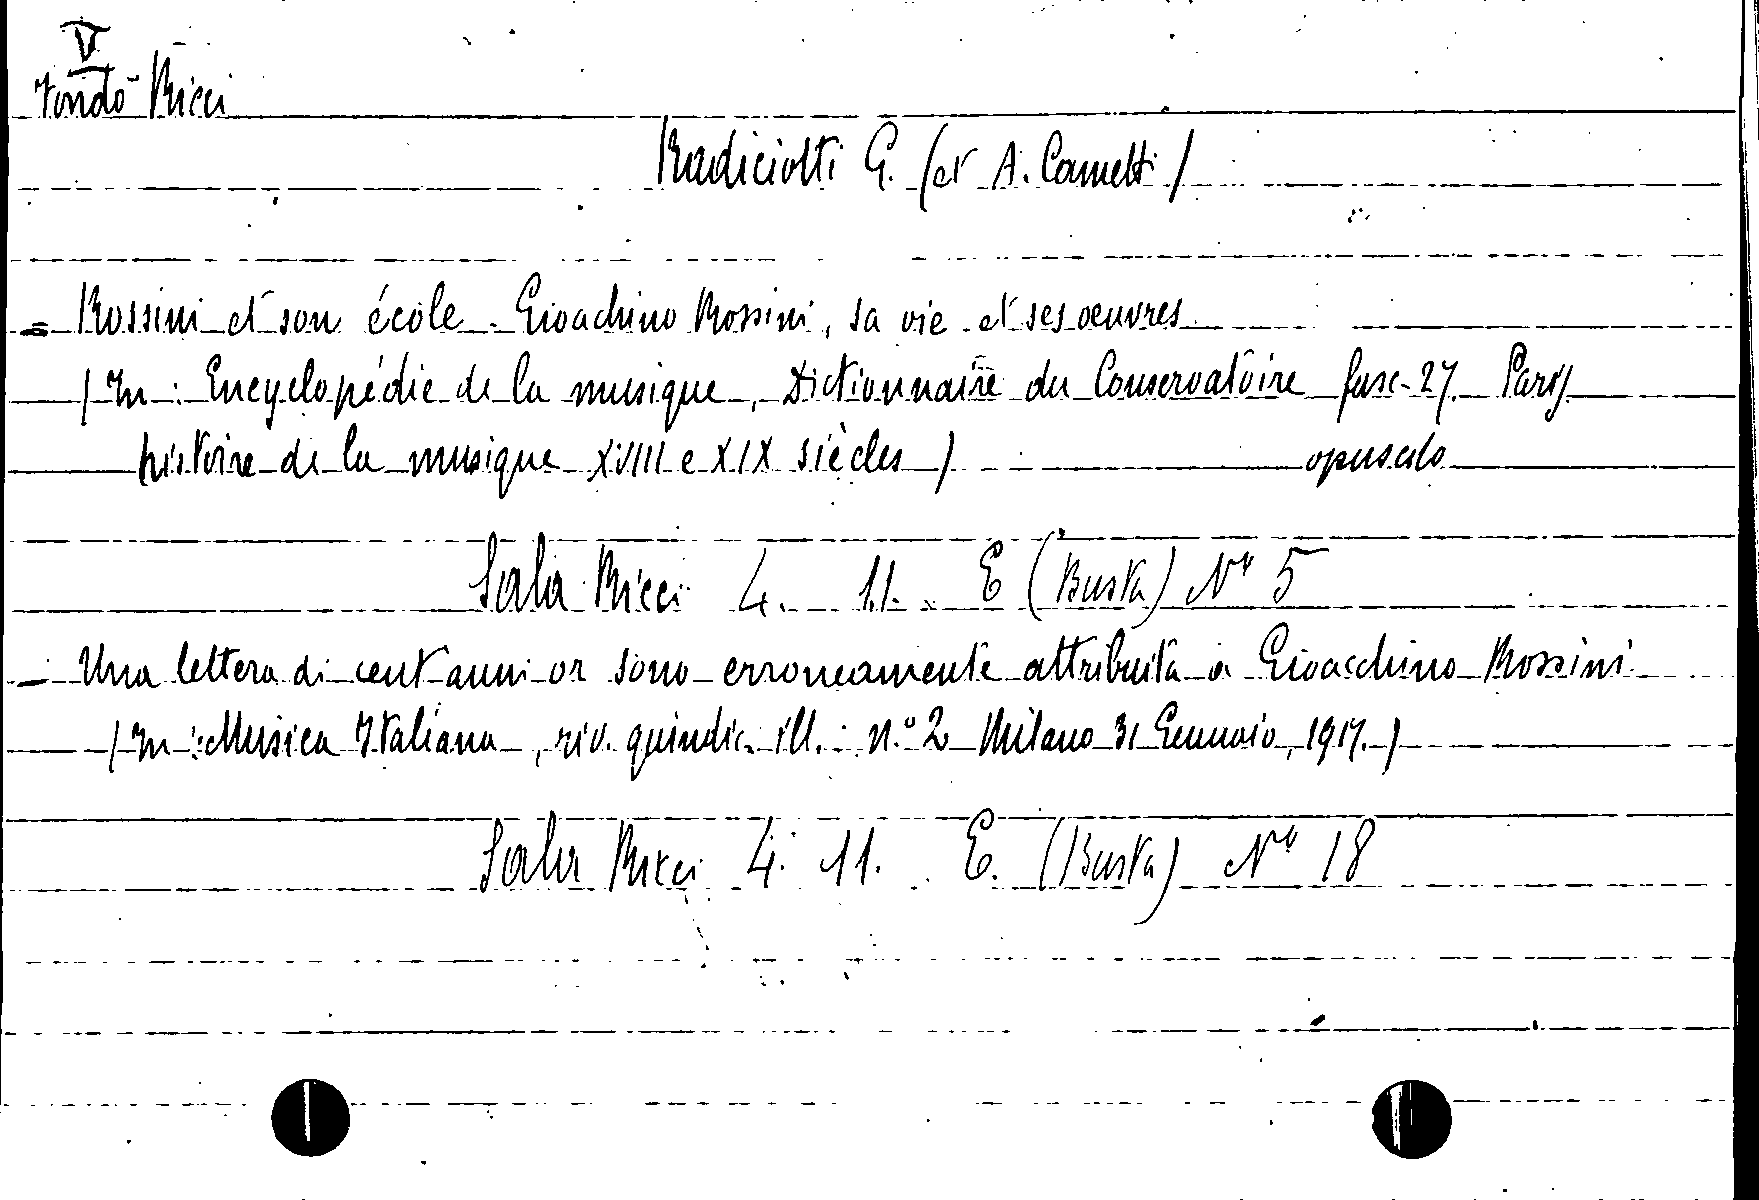 V
Fondo Ricci
Radiciotti G. (et A. Cametti)
= Rossini et son école. Gioachino Rossini, sa vie et ses oeuvres
(In: Encyclopédie de la musique, Dictionnaire du Conservatoire fasc. 27. Paris
histoire de la musique XVIII e XIX siècles) opuscolo
Sala Ricci 4. 11. E (Busta) N° 5
- Una lettera di cent'anni or sono erroneamente attribuita a Gioacchino Rossini.
(In: Musica Italiana, riv. quindic. ill. n.° 2 Milano 31 Gennaio, 1917.)
Sala Ricci 4. 11. E. (Busta) N° 18